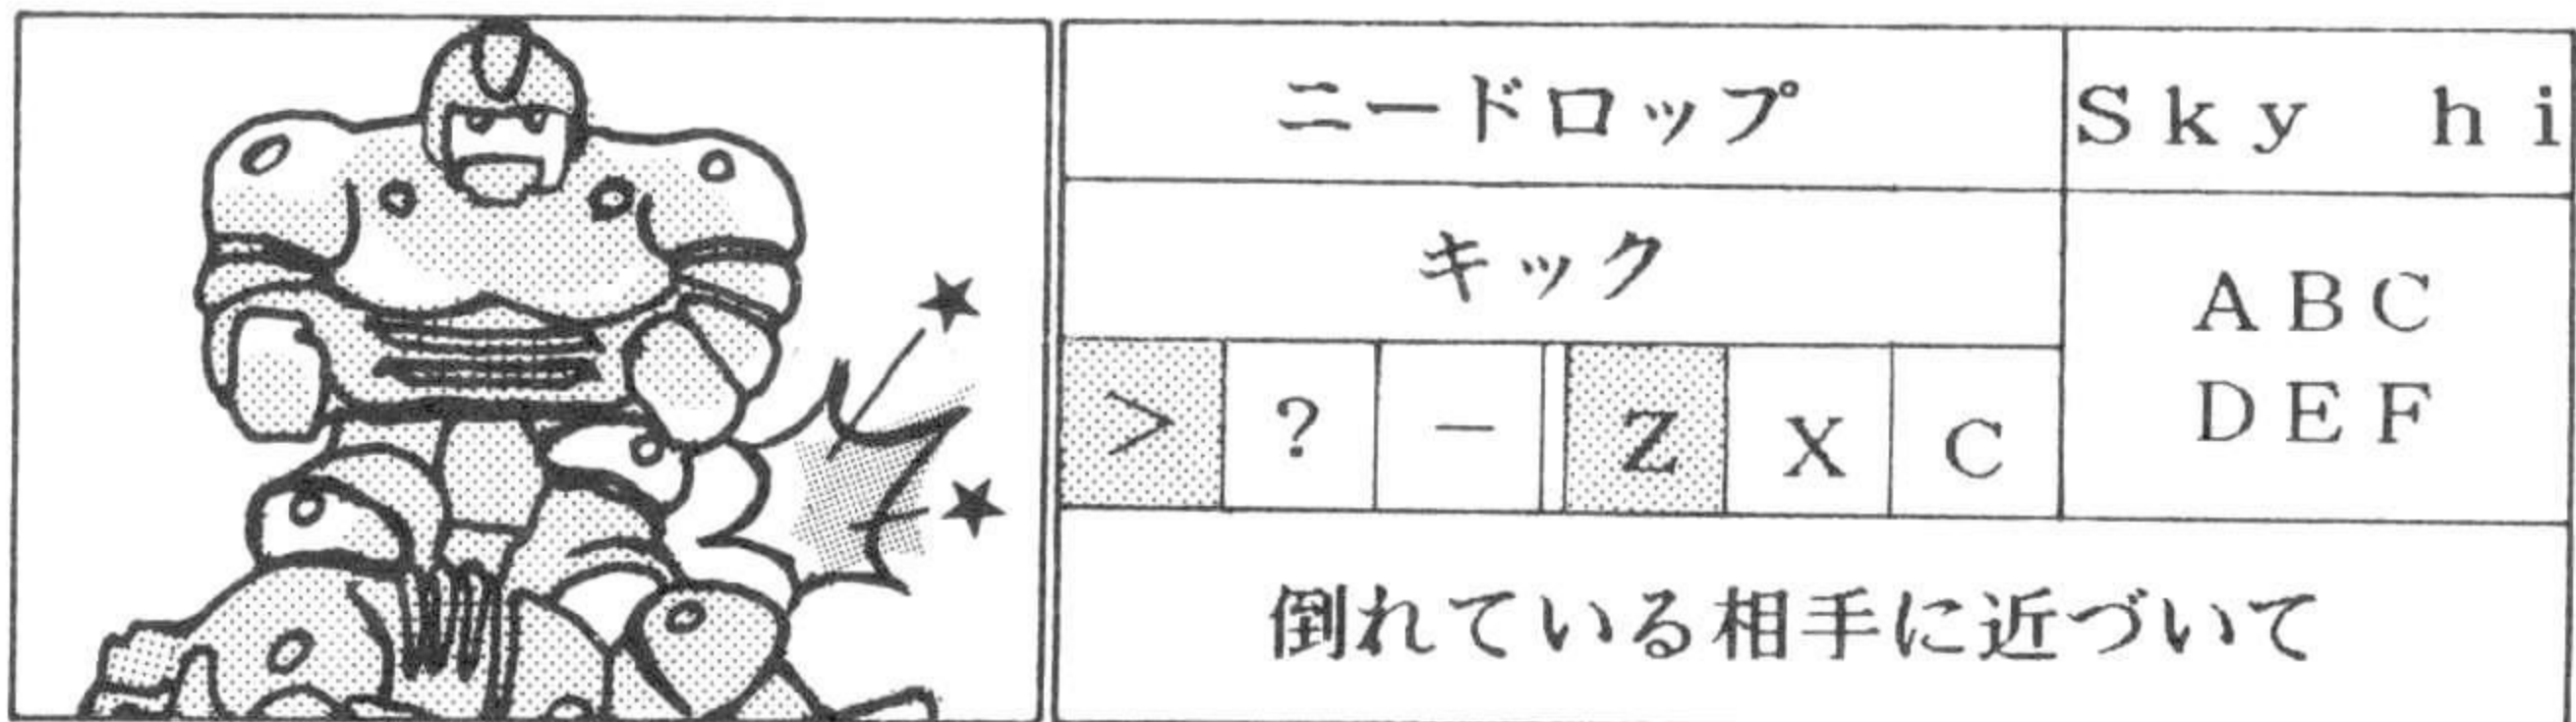 ニードロップ
Sky hi
キック
ABC
DEF
> ? － Z X C
倒れている相手に近づいて